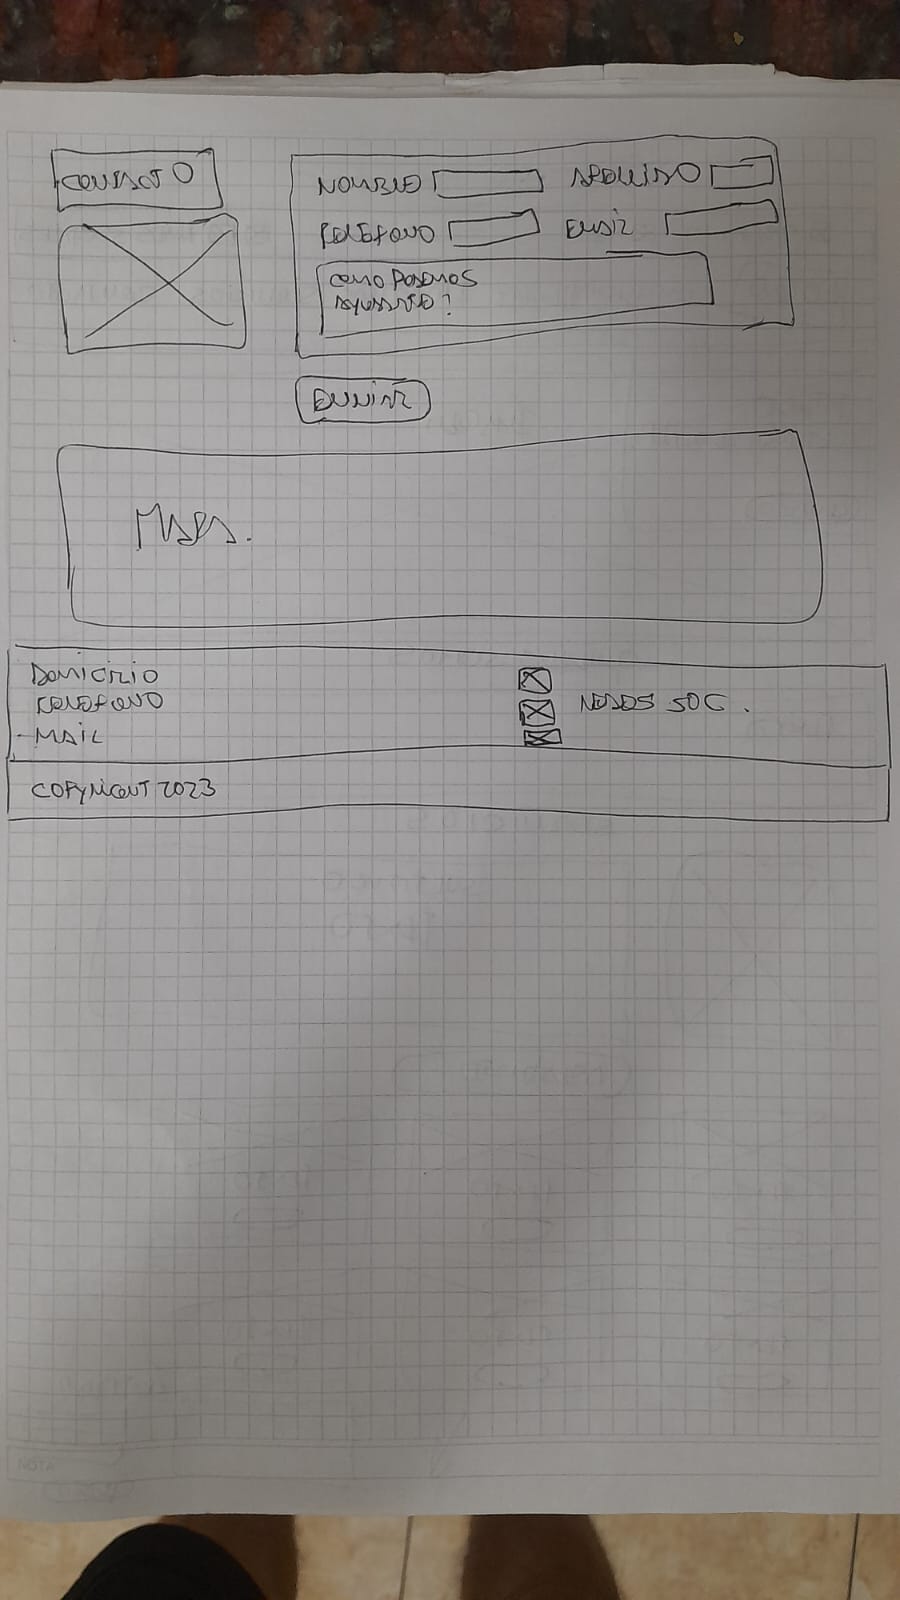 CONTACTO
NOMBRE
APELLIDO
TELEFONO
EMAIL
COMO PODEMOS
AYUDARTE?
ENVIAR
MAPA.
DOMICILIO
TELEFONO
-MAIL
REDES SOC.
COPYRIGHT 2023
NOTA